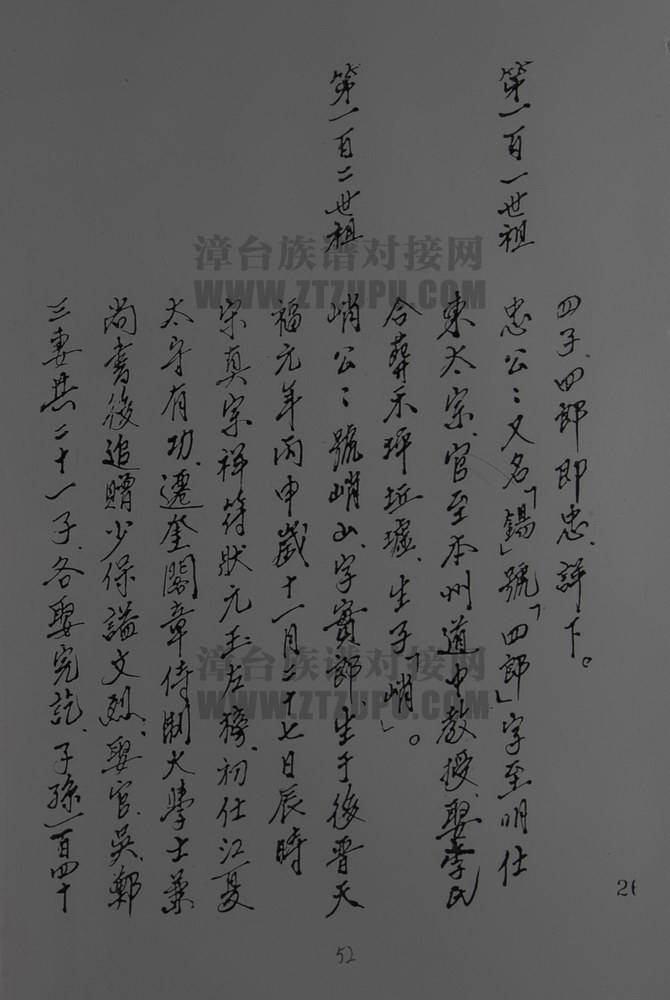 四子、四郎即忠、詳下。
第一百一世祖
忠公：又名「錫」號「四郎」字至明仕
東太宗、官至本州道中教授、娶李氏
合葬禾坪坵墟、生子「峭」。
第一百二世祖
峭公：號峭山、字實郎、生于後晋天
福元年丙申歲十一月二十七日辰時
宋真宗祥符狀元王左榜、初仕江夏
太守有功、遷奎閣章侍制大學士兼
尚書後追贈少保謚文烈、娶官、吳、鄭
三妻共二十一子、各娶完訖、子孫一百四十
漳台族谱对接网
WWW.ZTZUPU.COM
漳台族谱对接网
WWW.ZTZUPU.COM
26
52